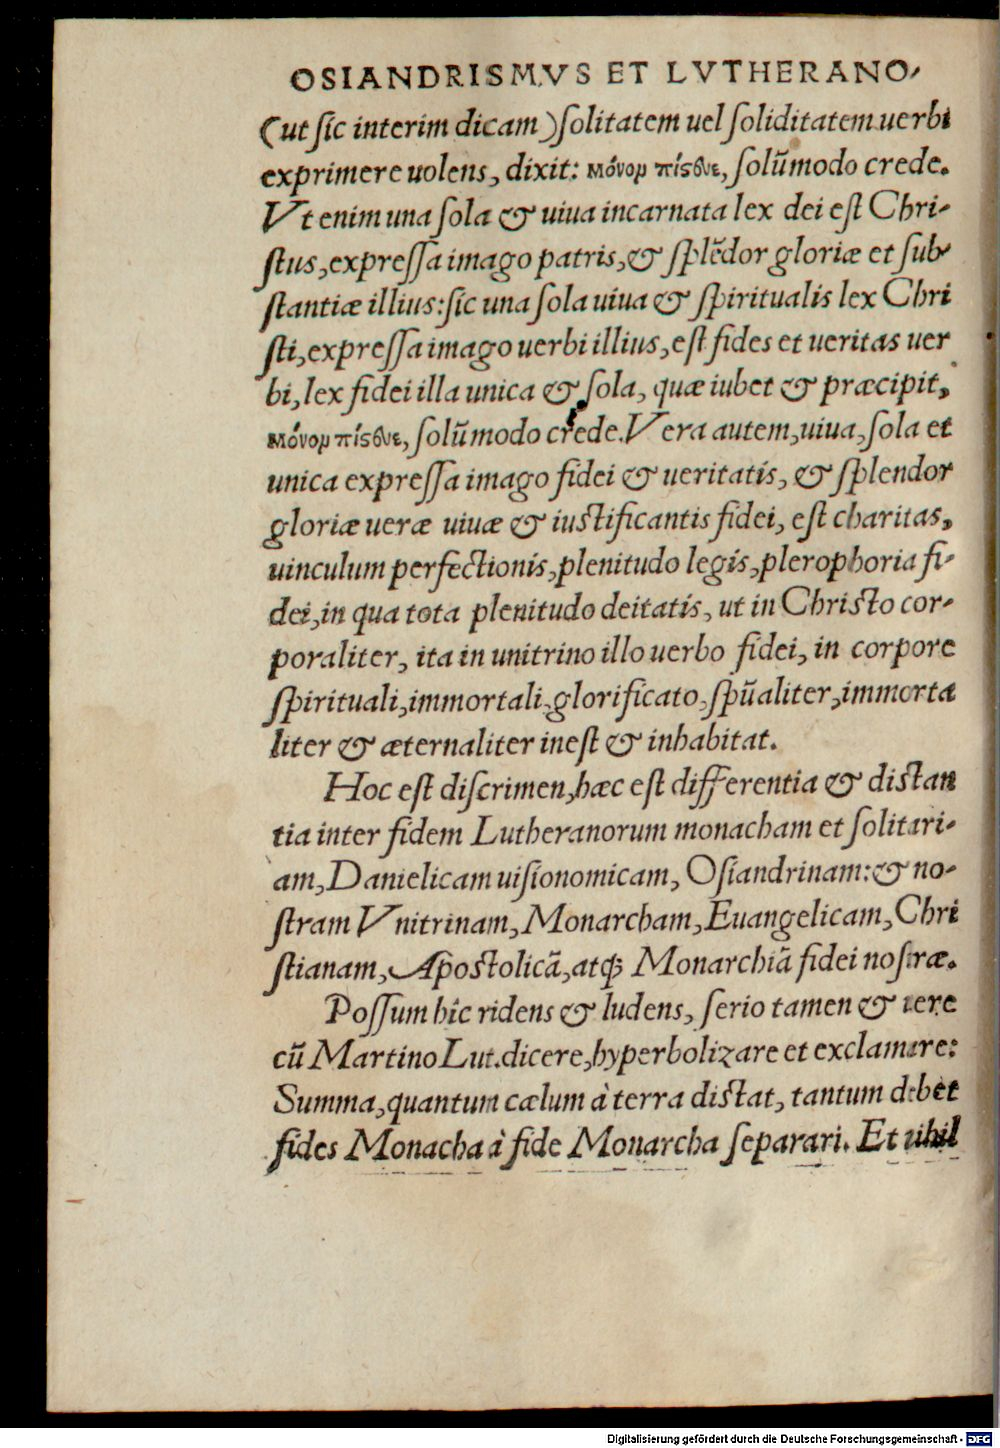 OSIANDRISMVS ET LVTHERANO-
(ut ſic interim dicam) ſolitatem uel ſoliditatem uerbi
exprimere uolens, dixit: μόνομ πίσευε, ſolũmodo crede.
Vt enim una ſola & uiua incarnata lex dei eſt Chri-
ſtus, expreſſa imago patris, & ſplẽdor gloriæ et ſub-
ſtantiæ illius: ſic una ſola uiua & ſpiritualis lex Chri
ſti, expreſſa imago uerbi illius, eſt fides et ueritas uer
bi, lex fidei illa unica & ſola, quæ iubet & præcipit,
μόνομ πίσευε, ſolũmodo crede. Vera autem, uiua, ſola et
unica expreſſa imago fidei & ueritatis, & ſplendor
gloriæ ueræ uiuæ & iuſtificantis fidei, eſt charitas,
uinculum perfectionis, plenitudo legis, plerophoria fi-
dei, in qua tota plenitudo deitatis, ut in Chriſto cor-
poraliter, ita in unitrino illo uerbo fidei, in corpore
ſpirituali, immortali, glorificato, ſpũaliter, immorta
liter & æternaliter ineſt & inhabitat.
Hoc eſt diſcrimen, hæc eſt differentia & diſtan
tia inter fidem Lutheranorum monacham et ſolitari-
am, Danielicam uiſionomicam, Oſiandrinam: & no-
ſtram Vnitrinam, Monarcham, Euangelicam, Chri
ſtianam, Apoſtolicã, atq; Monarchiã fidei noſtræ.
Poſſum hîc ridens & ludens, ſerio tamen & uere
cũ Martino Lut. dicere, hyperbolizare et exclamare:
Summa, quantum cælum à terra diſtat, tantum debet
fides Monacha à fide Monarcha ſeparari. Et nihil
Digitalisierung gefördert durch die Deutsche Forschungsgemeinschaft - DFG